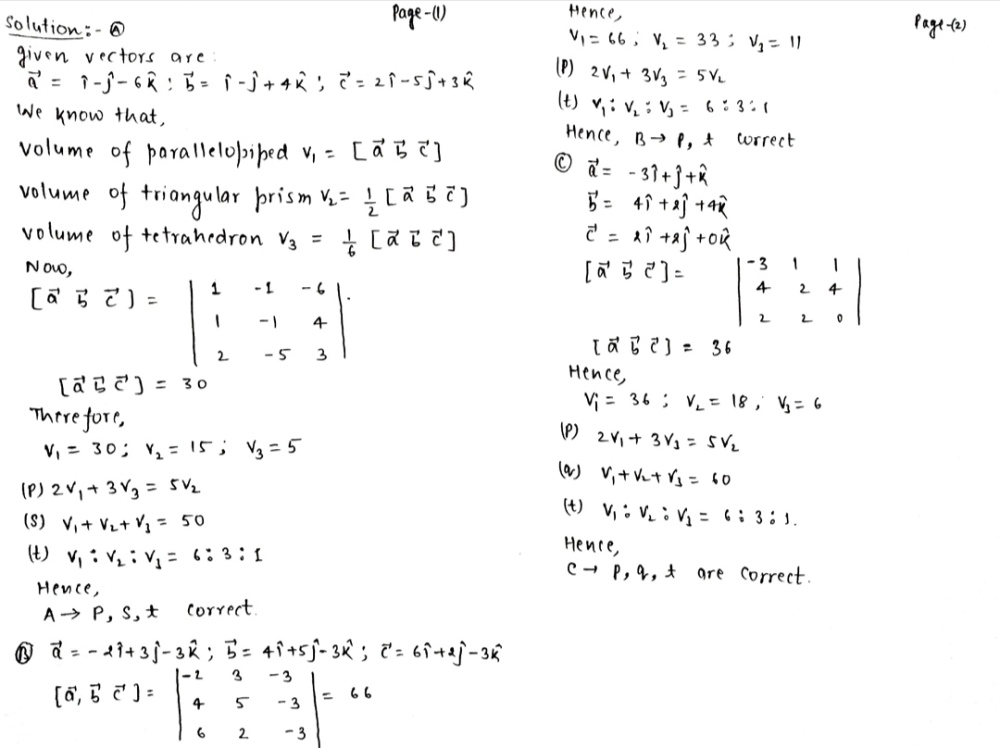 Page-(1)
Solution:- Ⓐ
given vectors are:
a⃗ = î-ĵ-6k̂ ; b⃗ = î-ĵ+4k̂ ; c⃗ = 2î-5ĵ+3k̂
We know that,
volume of parallelopiped V₁ = [a⃗ b⃗ c⃗]
volume of triangular prism V₂ = 1/2 [a⃗ b⃗ c⃗]
volume of tetrahedron V₃ = 1/6 [a⃗ b⃗ c⃗]
Now,
[a⃗ b⃗ c⃗] = | 1 -1 -6 |
| 1 -1 4 |
| 2 -5 3 |
[a⃗ b⃗ c⃗] = 30
Therefore,
V₁ = 30 ; V₂ = 15 ; V₃ = 5
(P) 2V₁ + 3V₃ = 5V₂
(S) V₁ + V₂ + V₃ = 50
(t) V₁ : V₂ : V₃ = 6 : 3 : 1
Hence,
A → P, S, t correct.
Ⓑ a⃗ = -2î+3ĵ-3k̂ ; b⃗ = 4î+5ĵ-3k̂ ; c⃗ = 6î+2ĵ-3k̂
[a⃗, b⃗ c⃗] = | -2 3 -3 |
| 4 5 -3 | = 66
| 6 2 -3 |
Page-(2)
Hence,
V₁ = 66 ; V₂ = 33 ; V₃ = 11
(P) 2V₁ + 3V₃ = 5V₂
(t) V₁ : V₂ : V₃ = 6 : 3 : 1
Hence, B → P, t correct
Ⓒ a⃗ = -3î+ĵ+k̂
b⃗ = 4î+2ĵ+4k̂
c⃗ = 2î+2ĵ+0k̂
[a⃗ b⃗ c⃗] = | -3 1 1 |
| 4 2 4 |
| 2 2 0 |
[a⃗ b⃗ c⃗] = 36
Hence,
V₁ = 36 ; V₂ = 18, V₃ = 6
(P) 2V₁ + 3V₃ = 5V₂
(q) V₁ + V₂ + V₃ = 60
(t) V₁ : V₂ : V₃ = 6 : 3 : 1.
Hence,
C → P, q, t are correct.